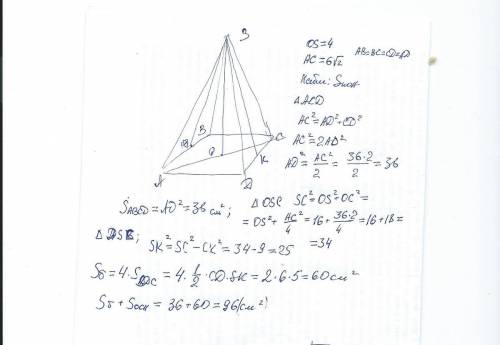 S
OS=4
AC=6√2
AB=BC=CD=AD
Найти: Sпол
△ACD
AC²=AD²+CD²
AC²=2AD²
AD²=AC²/2=36·2/2=36
B
C
O
K
A
D
SABCD=AD²=36 см²;
△OSC SC²=OS²+OC²=
=OS²+AC²/4=16+36·2/4=16+18=
=34
SK²=SC²-CK²=34-9=25
Sб=4·SDSC=4·1/2·CD·SK=2·6·5=60см²
Sб+Sосн=36+60=96(см²)